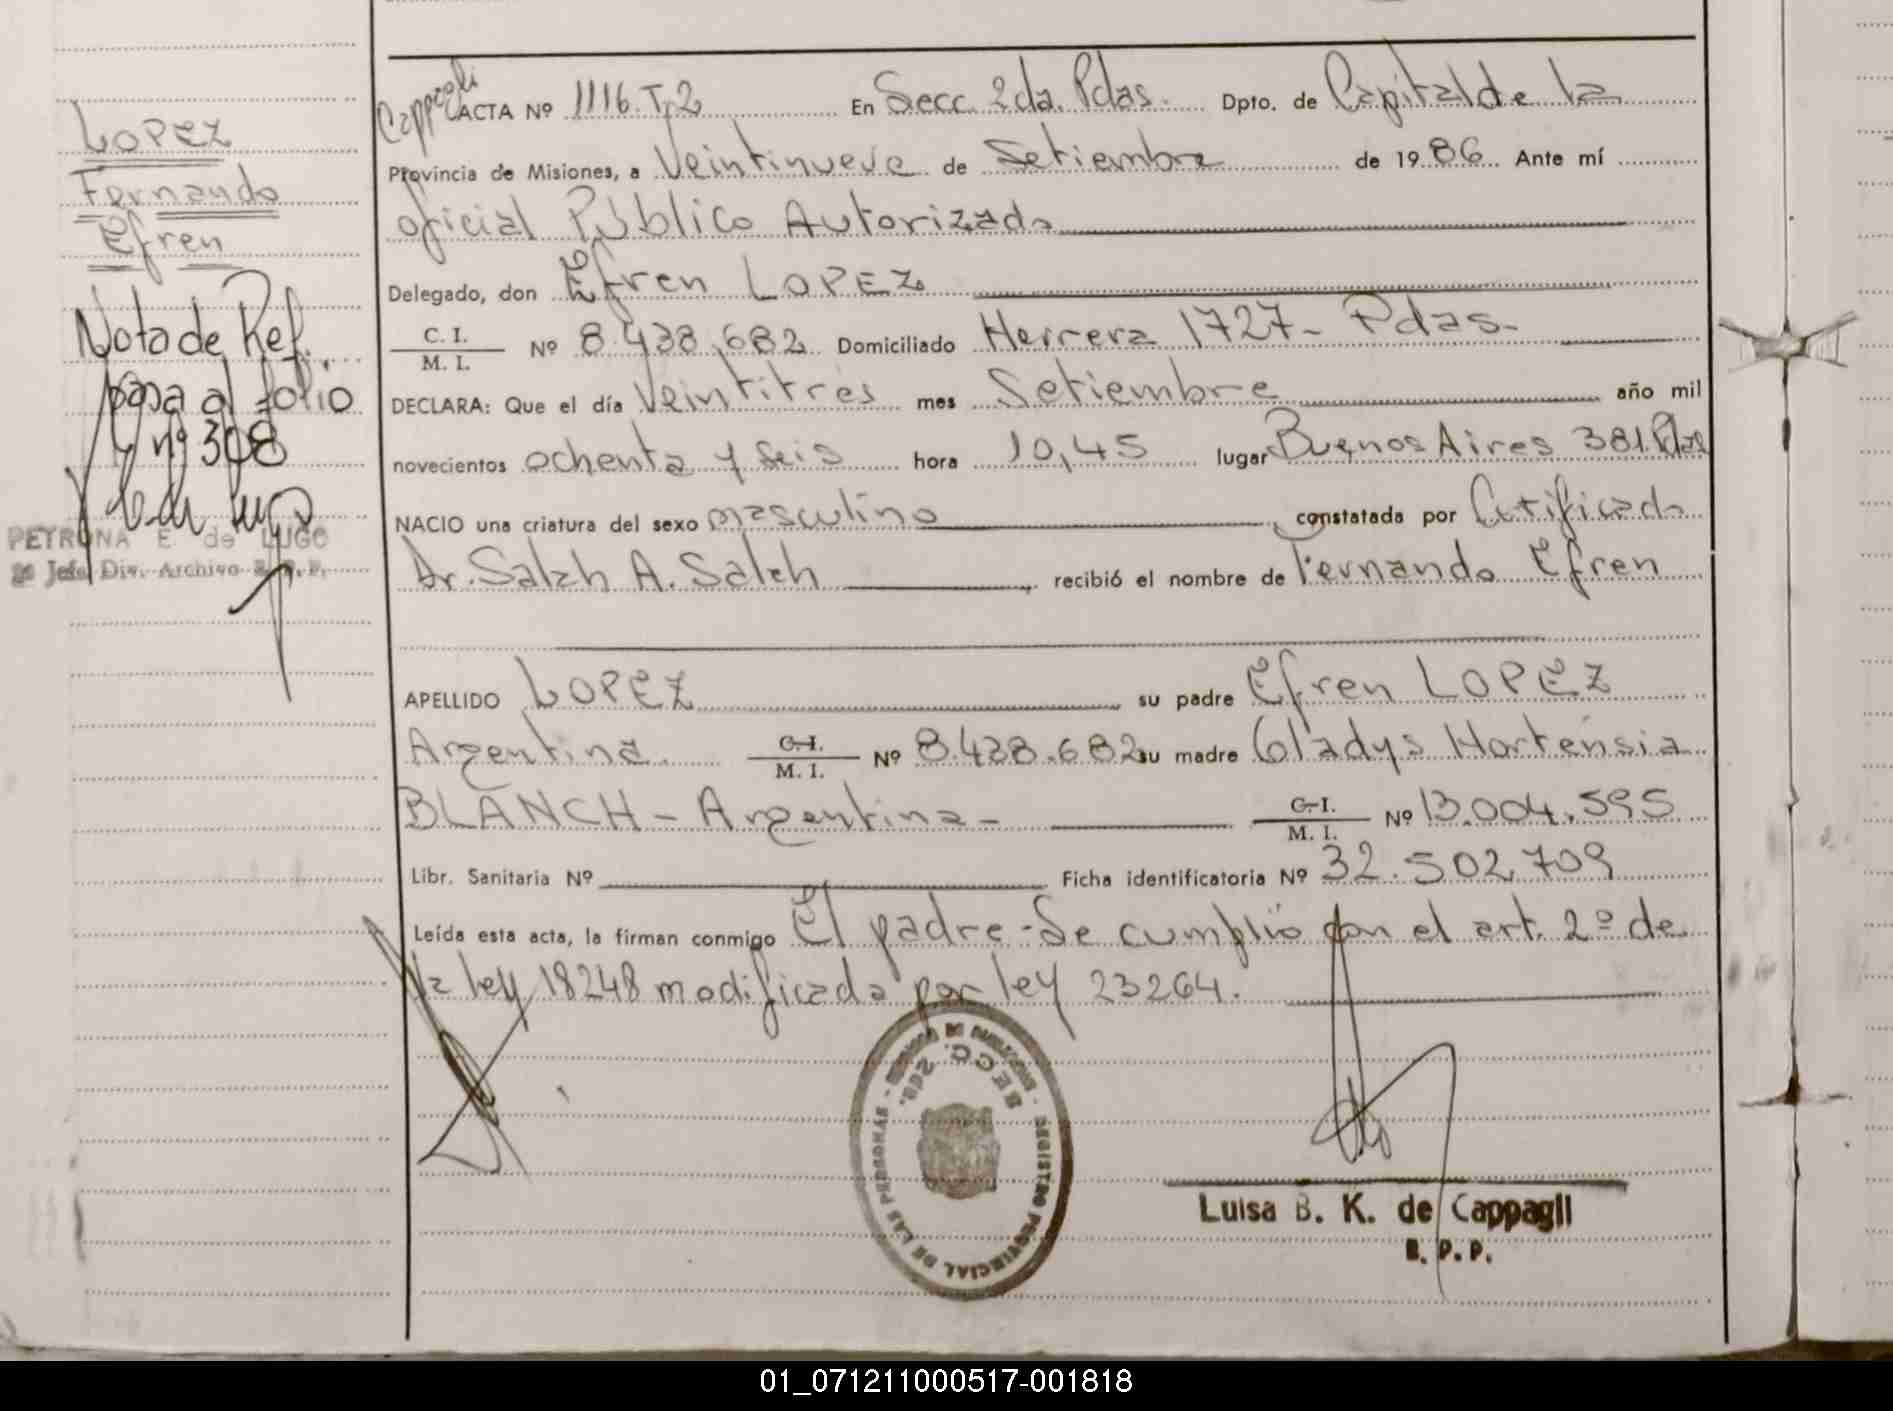 LOPEZ
Fernando
Efren
Nota de Ref.
pasa al folio
nº 308
PETRONA E de LUGO
2º Jefe Div. Archivo R. P. P.
Cappagli
ACTA Nº 1116.T.2 En Secc. 2da. Pdas. Dpto. de Capital de la
Provincia de Misiones, a Veintinueve de Setiembre de 1986 Ante mí
oficial Público Autorizado
Delegado, don Efren LOPEZ
C. I.
M. I.
Nº 8.438.682 Domiciliado Herrera 1727- Pdas.-
DECLARA: Que el día Veintitres mes Setiembre año mil
novecientos ochenta y seis hora 10,45 lugar Buenos Aires 381. Pdas
NACIO una criatura del sexo masculino constatada por Certificado
Dr. Saleh A. Saleh recibió el nombre de Fernando Efren
APELLIDO LOPEZ su padre Efren LOPEZ
Argentina. C. I. M. I. Nº 8.438.682 su madre Gladys Hortensia
BLANCH - Argentina - C. I. M. I. Nº 13.004.595
Libr. Sanitaria Nº Ficha identificatoria Nº 32.502.709
Leída esta acta, la firman conmigo El padre - Se cumplió con el art. 2º de
la ley 18248 modificada por ley 23264.
REGISTRO PROVINCIAL DE LAS PERSONAS
SECC. 2da.
Luisa B. K. de Cappagli
R. P. P.
01_071211000517-001818